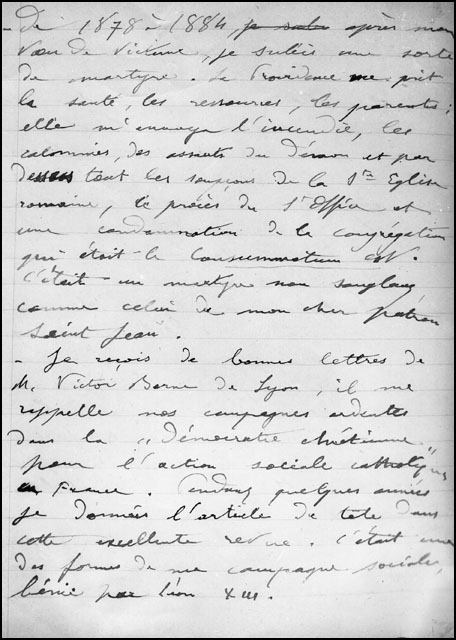 - De 1878 à 1884, je subis après mon
Vœu de Victime, je subis une sorte
de martyre. La Providence me prit
la santé, les ressources, les parents ;
elle m'envoya l'incendie, les
calomnies, des assauts du démon et par
dessus tout les soupçons de la Ste Eglise
romaine, le procès du St Office et
une condamnation de la congrégation
qui était le Consummatum est.
C'était un martyre non sanglant
comme celui de mon cher patron
Saint Jean.
- Je reçois de bonnes lettres de
M. Victor Berne de Lyon, il me
rappelle nos campagnes ardentes
dans la „Démocratie chrétienne"
pour l'action sociale catholique
en France. Pendant quelques années
je donnais l'article de tête dans
cette excellente revue. C'était une
des formes de ma campagne sociale,
bénie par Léon XIII.